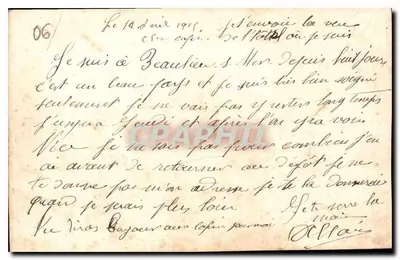 06/
Le 14 avril 1915 je t'envoie la vue
cher copin de l'Hotel ou je suis
Je suis a Beaulieu s. Mer depuis huit jours
c'est un beau pays et je suis très bien soigné
seulement je ne vais pas y rester long temps
jusqu'a Jeudi et après l'on ira vers
Nice je ne sais pas pour combien j'en
ai avant de retourner au depôt je ne
te donne pas mon adresse je te la donnerai
quand je serais plus loin
Je te serre la
main
Tu diras Bonjour aux copin pour moi
CPARAMA